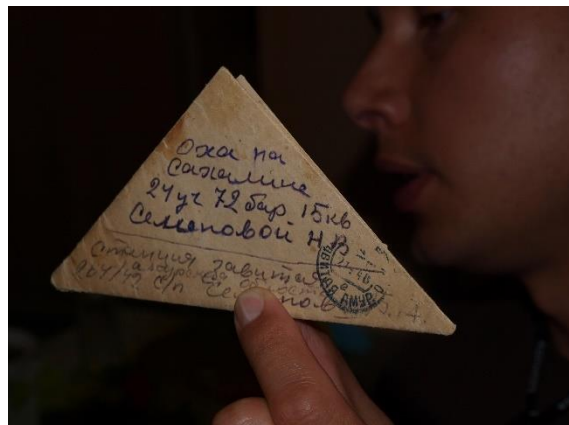 Оха на
Сахалине
24 уч 72 бар 15 кв
Семеновой Н.В
Станция Завитая
п/п Семенов
АМУР